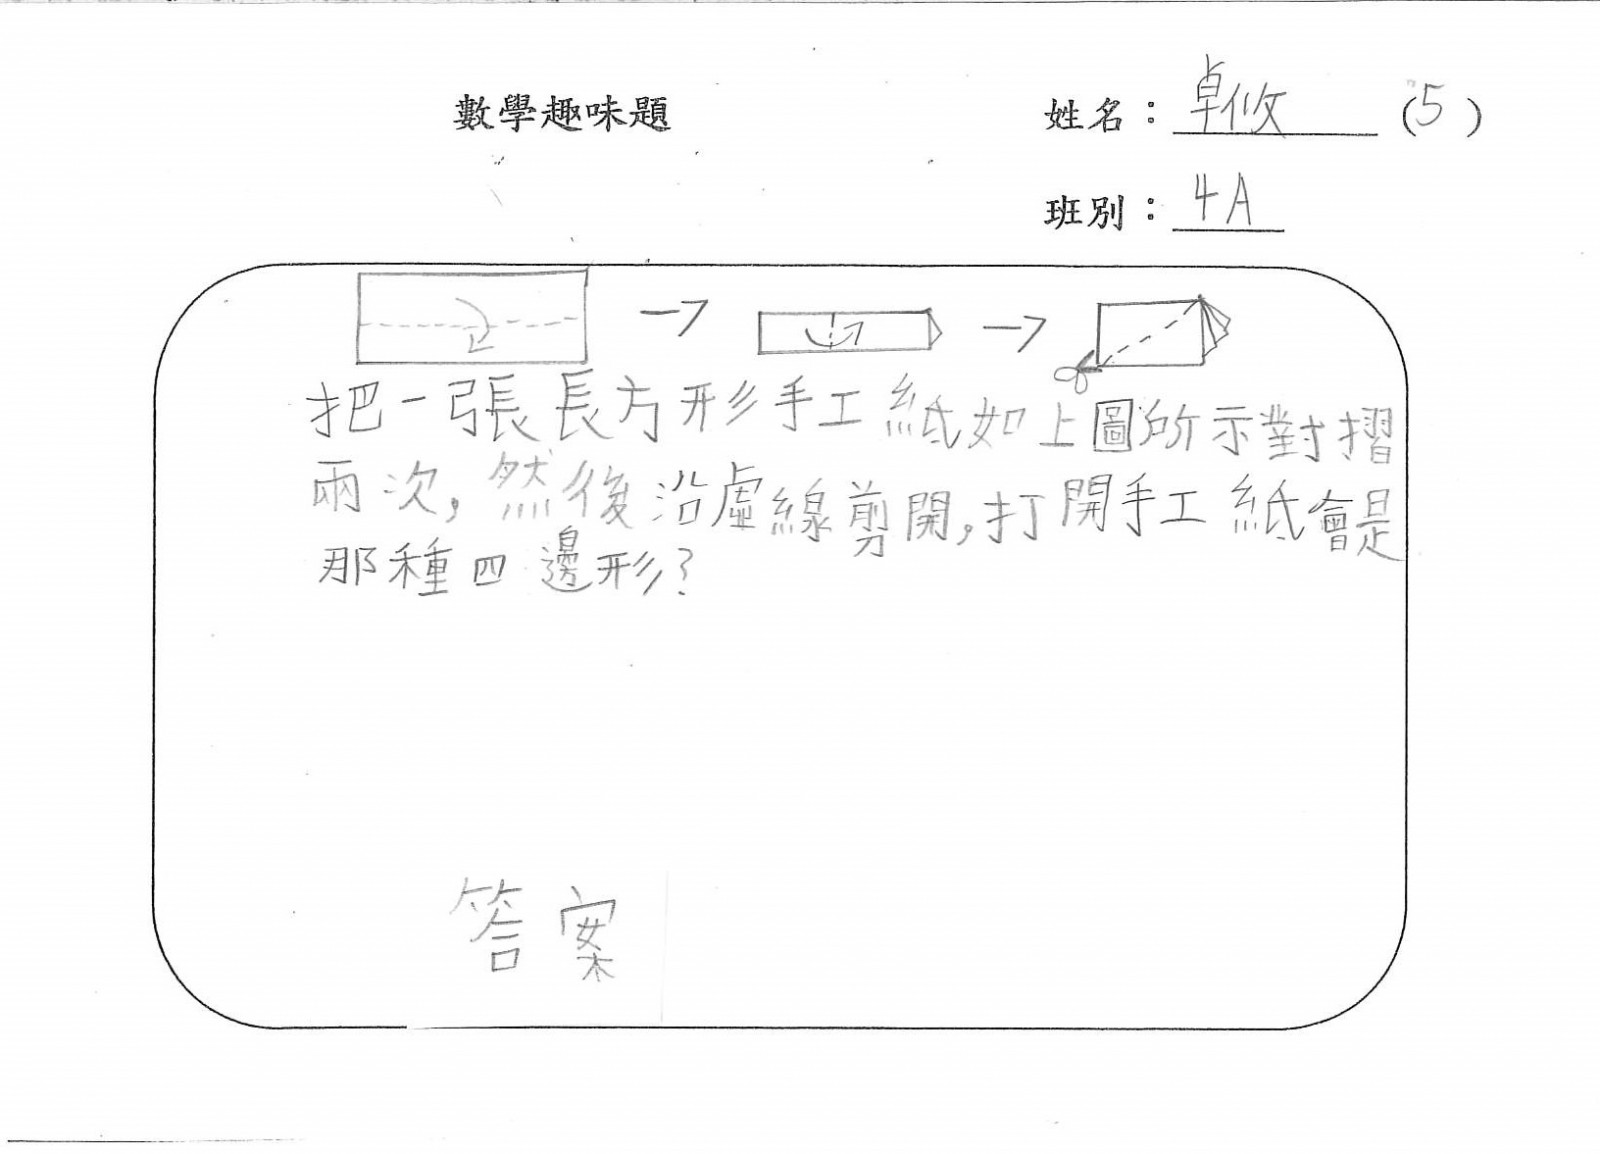 數學趣味題
姓名：卓攸 (5)
班別：4A
把一張長方形手工紙如上圖所示對摺
兩次，然後沿虛線剪開，打開手工紙會是
那種四邊形？
答案